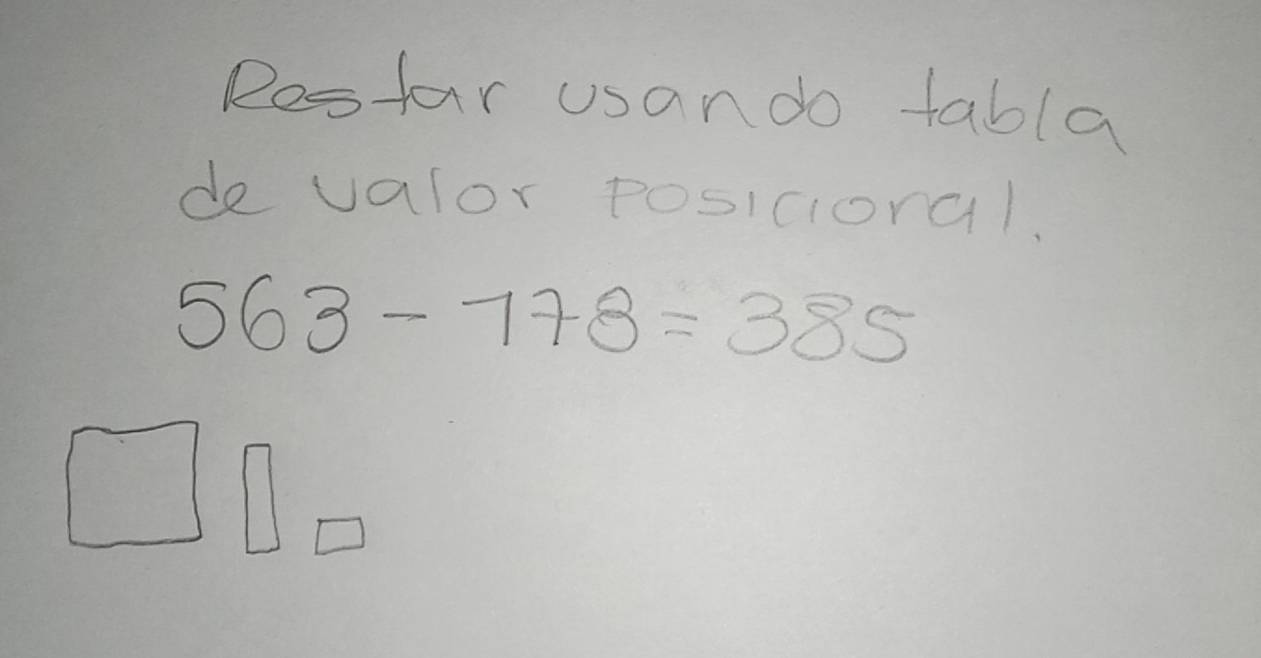 Restar usando tabla
de valor posicional.
563 - 178 = 385